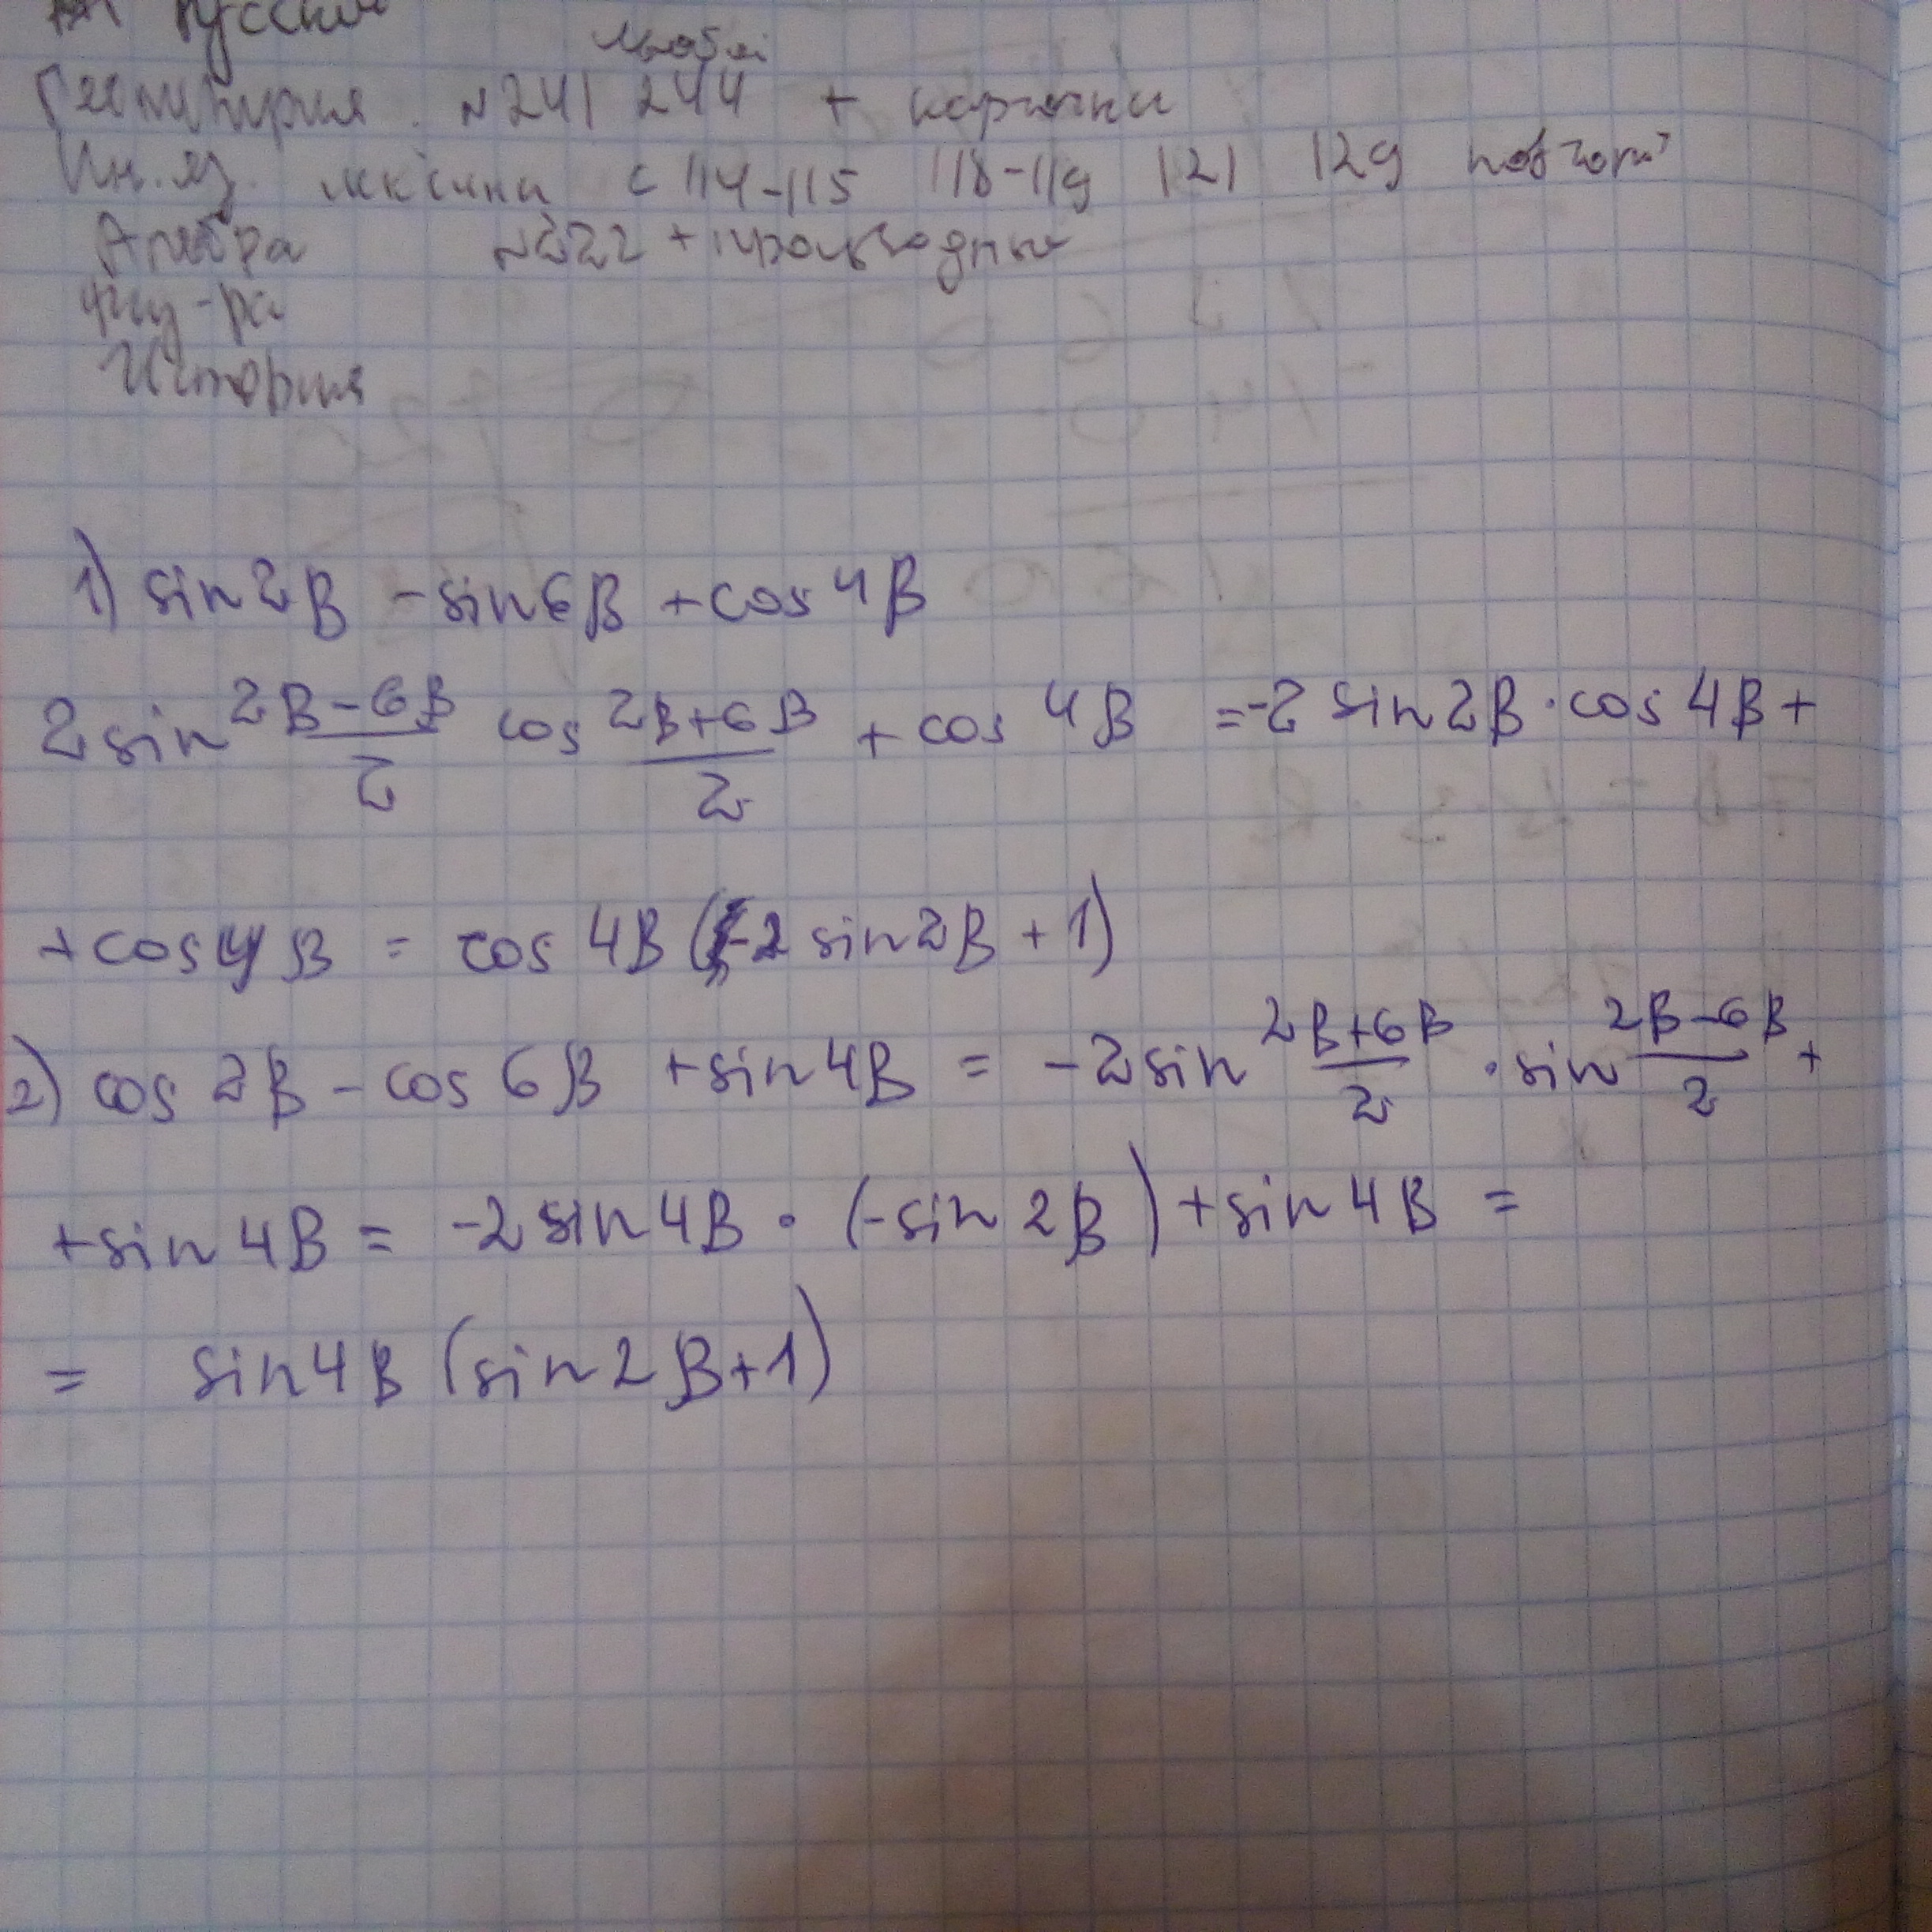 Русский
Геометрия. N241 244 + карточки
Ин. яз. с 114-115 118-119 121 129
Алгебра N222 + производные
Физ-ра
История
1) sin2β - sin6β + cos4β
2sin (2β-6β)/2 cos (2β+6β)/2 + cos 4β = -2 sin2β · cos4β +
+cos4β = cos 4β (-2 sin2β + 1)
2) cos 2β - cos 6β + sin4β = -2sin (2β+6β)/2 · sin (2β-6β)/2 +
+sin4β = -2sin4β · (-sin2β) + sin4β =
= sin4β (sin2β+1)